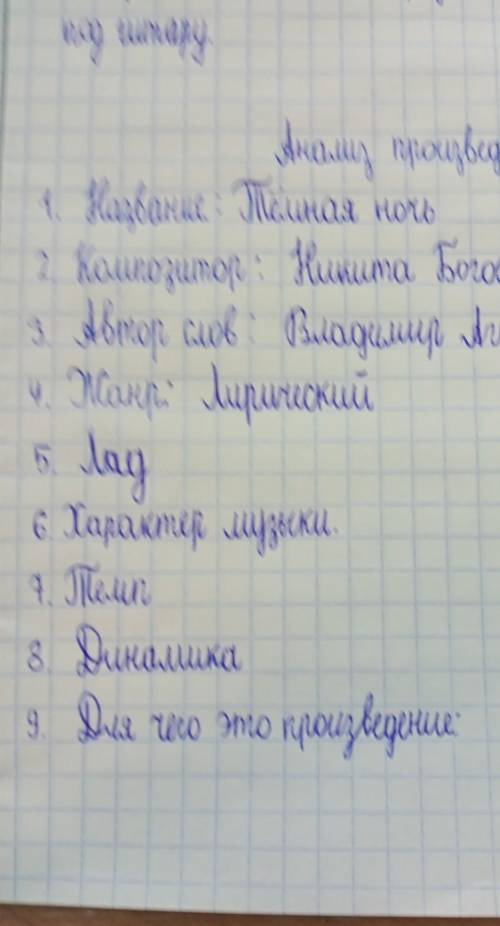 под гитару.
Анализ произвед
1. Название: Тёмная ночь
2. Композитор: Никита Богос
3. Автор слов: Владимир Аг
4. Жанр: Лирический
5. Лад
6. Характер музыки.
7. Темп
8. Динамика
9. Для чего это произведение: